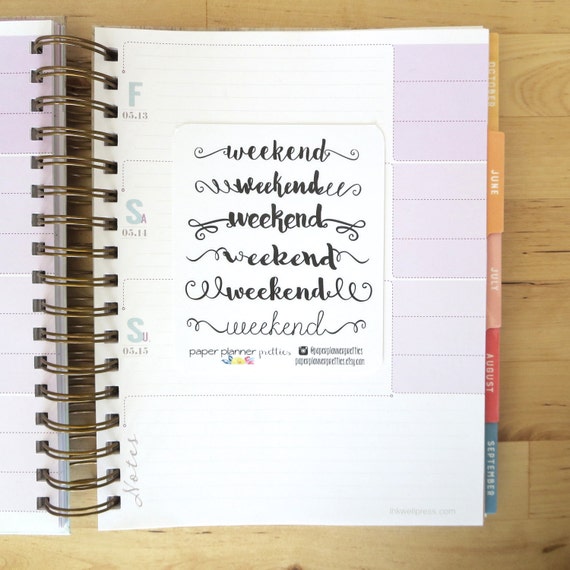 F
05.13
SA
05.14
SU
05.15
Notes
weekend
weekend
weekend
weekend
weekend
weekend
paper planner pretties
@paperplannerpretties
paperplannerpretties.etsy.com
inkwellpress.com
OCTOBER
JUNE
JULY
AUGUST
SEPTEMBER